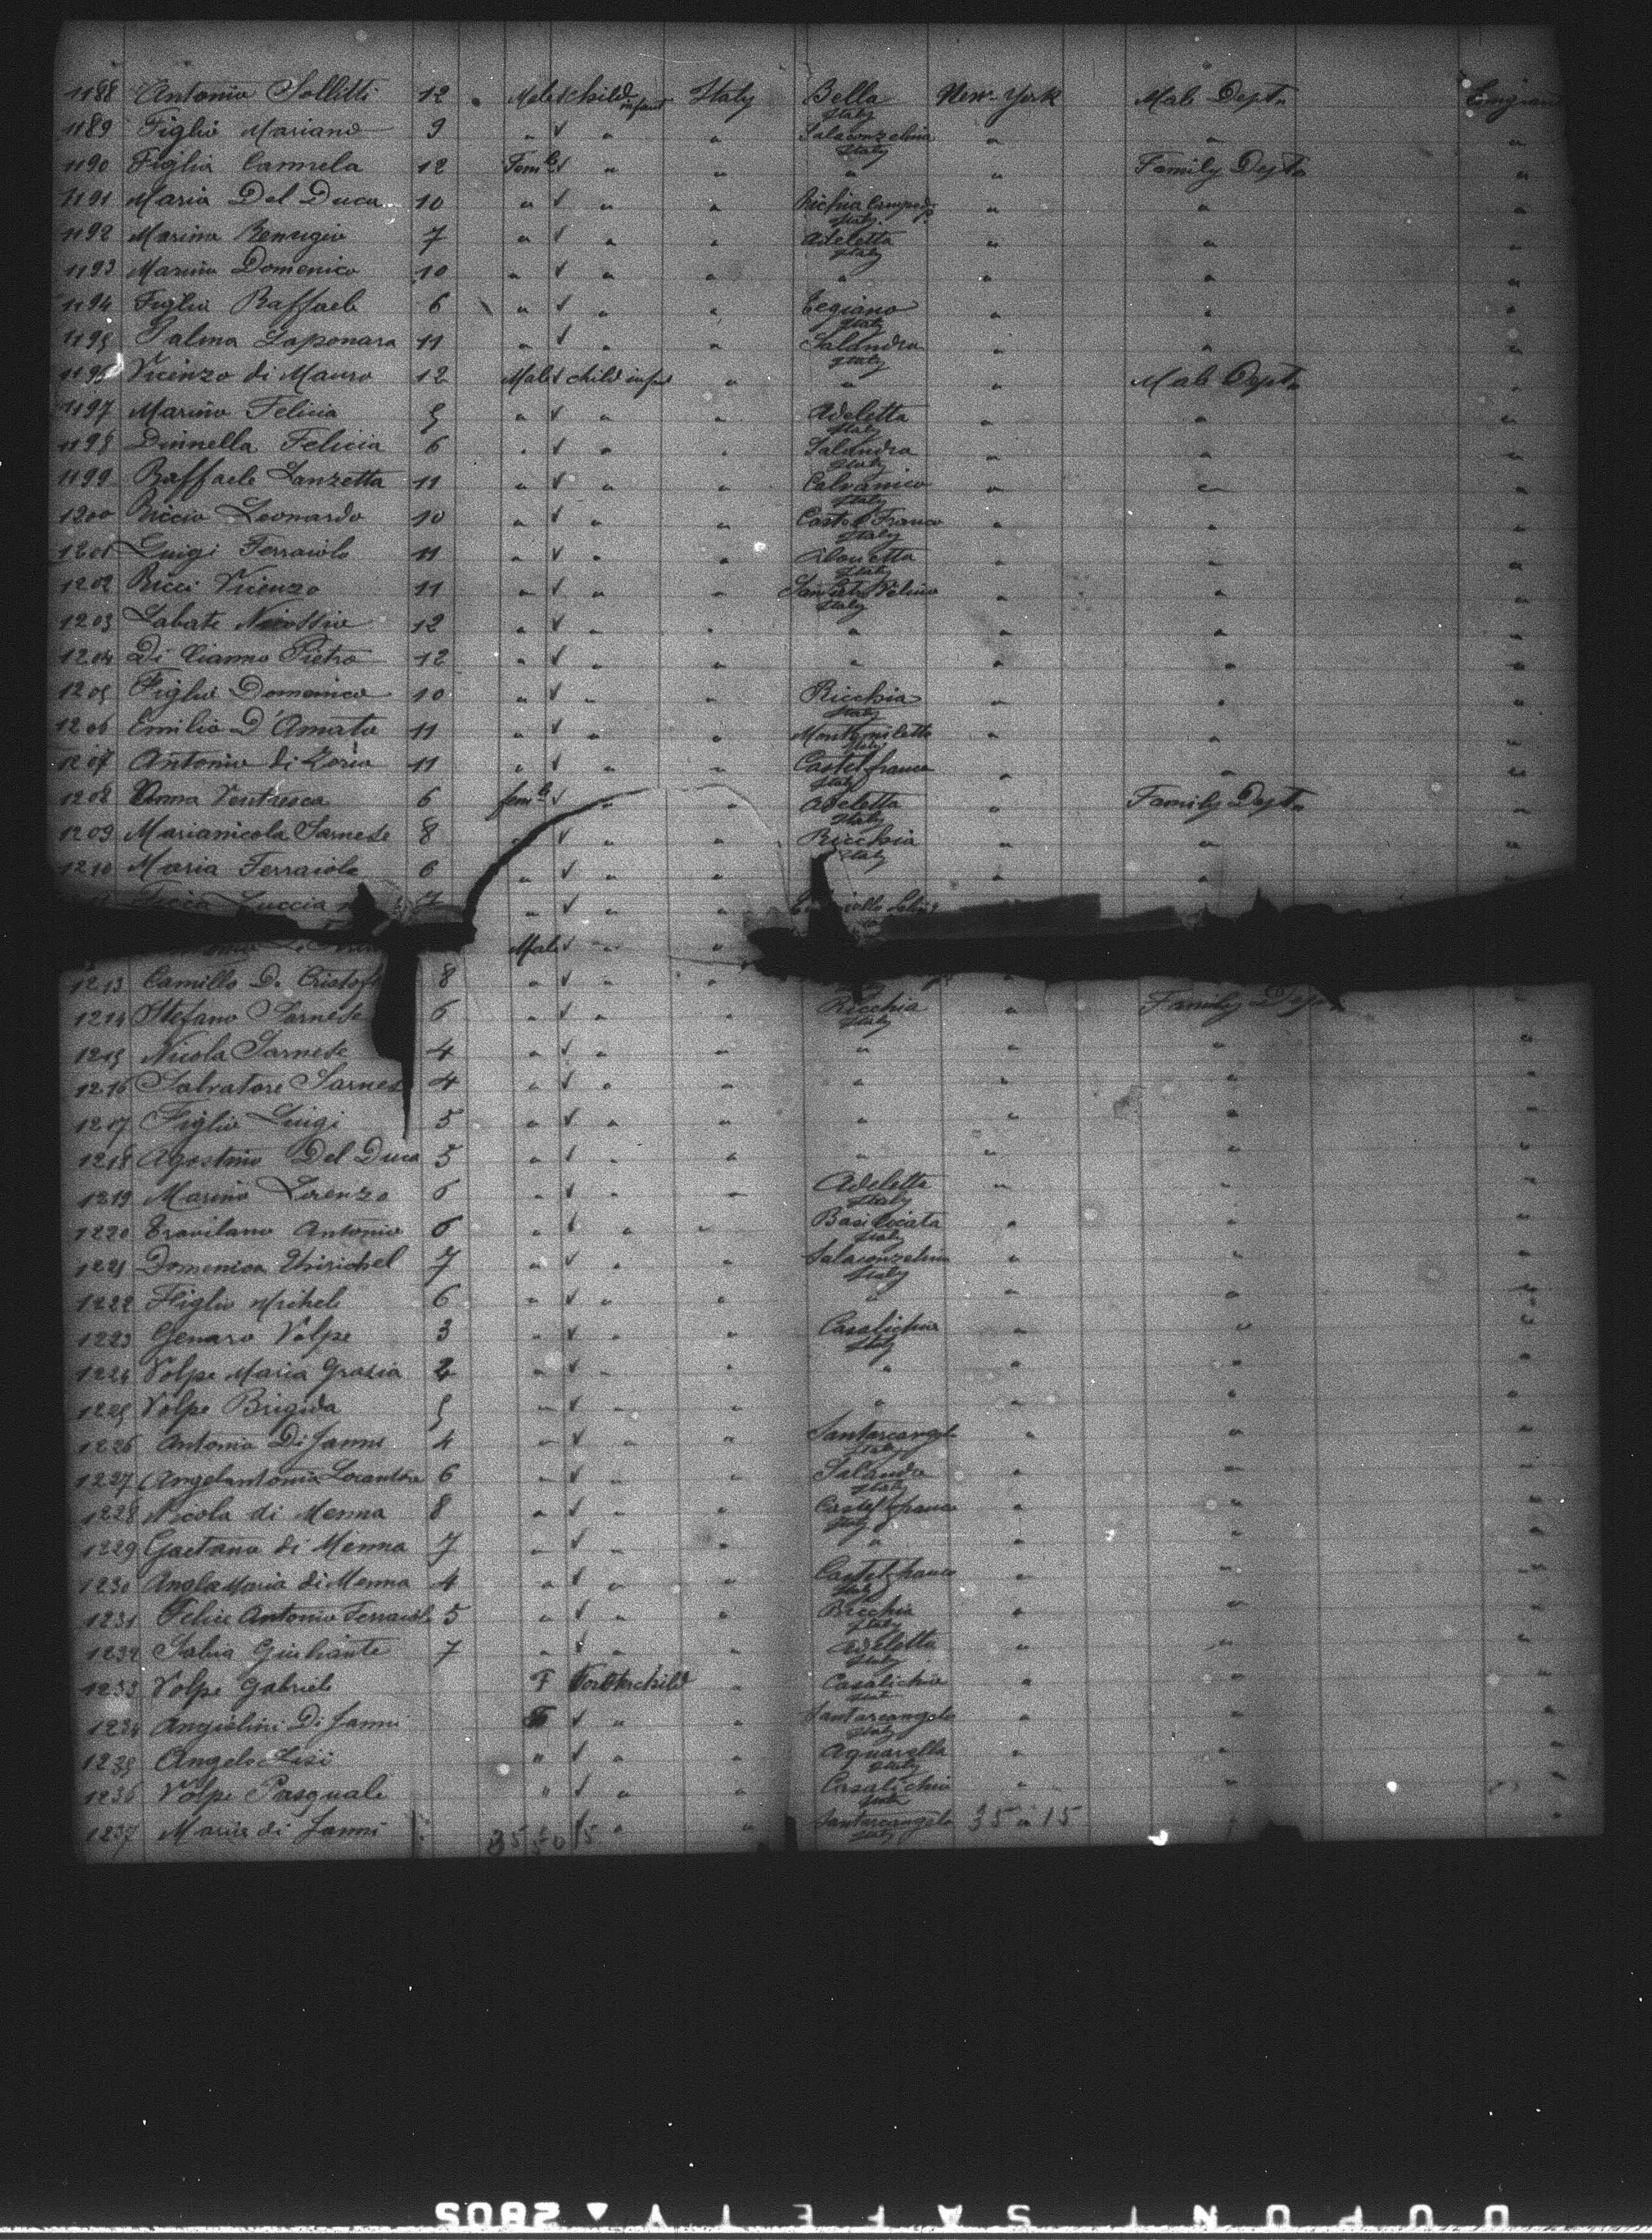 1188 Antonio Sollitti 12 Male child infant Italy Bella Italy New-York Male Depto
1189 Figlio Mariano 9 " √ " " Salaconzelina Italy " " "
1190 Figlia Carmela 12 Fem.le √ " " " " Family Depto "
1191 Maria Del Duca 10 " √ " " Richia Italy " " "
1192 Marino Remigio 7 " √ " " Adeletta Italy " " "
1193 Marino Domenico 10 " √ " " " " " "
1194 Figlio Raffaele 6 " √ " " Tegiano Italy " " "
1195 Palma Laponara 11 " √ " " Salandra Italy " " "
1196 Vicenzo di Mauro 12 Male child " " " Male Depto "
1197 Marino Felicia 5 " √ " " Adeletta Italy " " "
1198 Dinnella Felicia 6 " √ " " Salandra Italy " " "
1199 Raffaele Lanzetta 11 " √ " " Calvanico Italy " " "
1200 Riccio Leonardo 10 " √ " " Castel Franco Italy " " "
1201 Luigi Ferraiolo 11 " √ " " Italy " " "
1202 Ricci Vicenzo 11 " √ " " Italy " " "
1203 Labate 12 " √ " " " " " "
1204 Di Cianno Pietro 12 " √ " " " " " "
1205 Figlio Domenico 10 " √ " " Ricchia Italy " " "
1206 Emilio D'Amato 11 " √ " " Montemiletto Italy " " "
1207 Antonio di Zoria 11 " √ " " Castelfranco Italy " " "
1208 Anna Ventresca 6 fem.le √ " " Adeletta Italy " Family Depto "
1209 Marianicola Sarnese 8 " √ " " Ricchia Italy " " "
1210 Maria Ferraiolo 6 " √ " " " " "
Luccia 7 " √ " "
Male √ " "
1213 Camillo D. 8 " √ " "
1214 Stefano Sarnese 6 " √ " " Ricchia Italy " Family
1215 Nicola Sarnese 4 " √ " " " " " "
1216 Salvatore Sarnes 4 " √ " " " " " "
1217 Figlio Luigi 5 " √ " " " " " "
1218 Agostino Del Duca 5 " √ " " " " " "
1219 Marino Lorenzo 6 " √ " " Adeletta Italy " " "
1220 Travilano Antonio 6 " √ " " Basilicata Italy " " "
1221 Domenica 7 " √ " " Salaconzelina Italy " " "
1222 Figlio Michele 6 " √ " " " " " "
1223 Genaro Volpe 3 " √ " " Casalichio Italy " " "
1224 Volpe Maria Grazia 2 " √ " " " " " "
1225 Volpe Brigida 5 " √ " " " " " "
1226 Antonia Di Janni 4 " √ " " Santarcangelo Italy " " "
1227 Angelantonia Locantore 6 " √ " " Salandra Italy " " "
1228 Nicola di Menna 8 " √ " " Castelfranco Italy " " "
1229 Gaetano di Menna 7 " √ " " " " " "
1230 Anglamaria di Menna 4 " √ " " Castelfranco Italy " " "
1231 Felice Antonio Ferraiolo 5 " √ " " Ricchia Italy " " "
1232 Salvia Giuliante 7 " √ " " Adeletta Italy " " "
1233 Volpe Gabriele F child " Casalichio Italy " " "
1234 Angiolini Di Janni √ " " Santarcangelo Italy " " "
1235 Angelo Lisi " √ " " Aquarella Italy " " "
1236 Volpe Pasquale " √ " " Casalichio Italy " " "
1237 Maria di Janni √ " " Santarcangelo Italy 35 15 " "
35 15
DUPONT SAFETY 2805